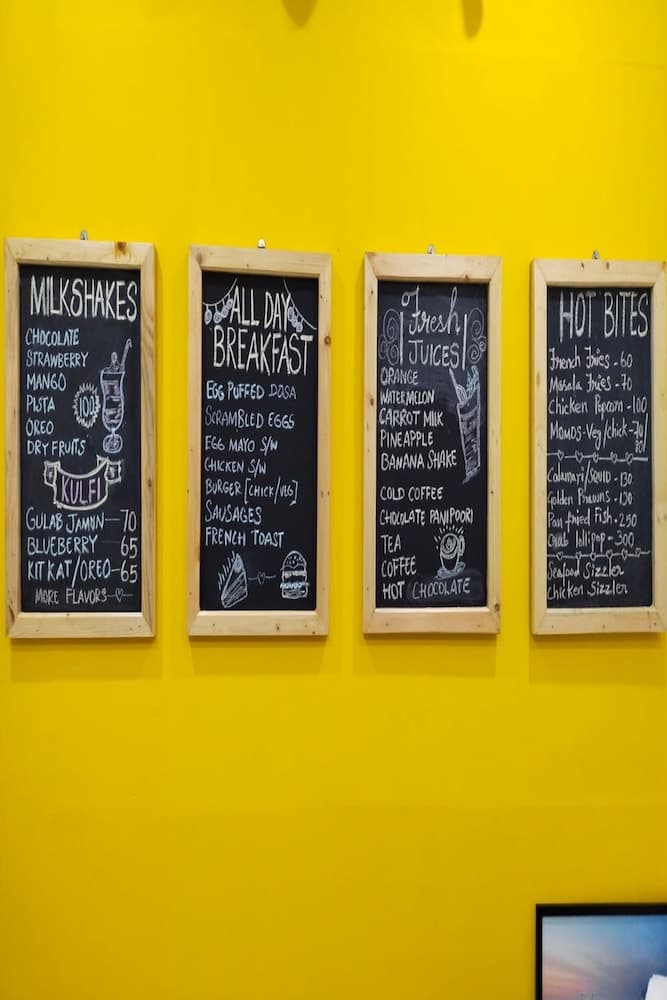 MILKSHAKES
CHOCOLATE
STRAWBERRY
MANGO
PISTA
OREO
DRY FRUITS
100
KULFI
GULAB JAMUN-70
BLUEBERRY-65
KITKAT/OREO-65
MORE FLAVORS
ALL DAY
BREAKFAST
EGG PUFFED DOSA
SCRAMBLED EGGS
EGG MAYO S/W
CHICKEN S/W
BURGER [CHICK/VEG]
SAUSAGES
FRENCH TOAST
Fresh
JUICES
ORANGE
WATERMELON
CARROT MILK
PINEAPPLE
BANANA SHAKE
COLD COFFEE
CHOCOLATE PANIPOORI
TEA
COFFEE
HOT CHOCOLATE
HOT BITES
French Fries - 60
Masala Fries - 70
Chicken Popcorn - 100
MOMOS-Veg/chick-70/
Calamari/SQUID - 130
Golden Prawns -
Pan fried Fish - 250
lollipop - 300
Seafood Sizzler
Chicken Sizzler